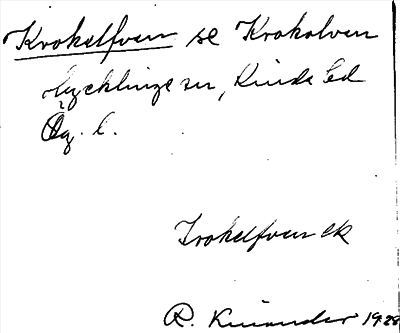 Krokelfven se Krokelven
Kycklinge sn, Kinda hd
Ög. l.
Krokelfven ek
R. Kinander 1928